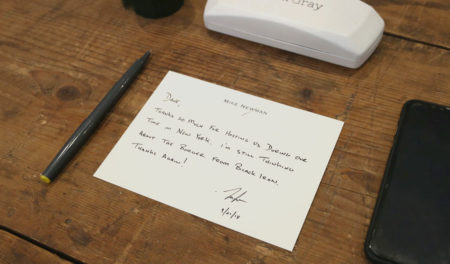 Gray
MIKE NEWMAN
Dave,
THANKS SO MUCH FOR HOSTING US DURING OUR
TIME IN NEW YORK. I'M STILL THINKING
ABOUT THE BURGER FROM BLACK IRON!
THANKS AGAIN!